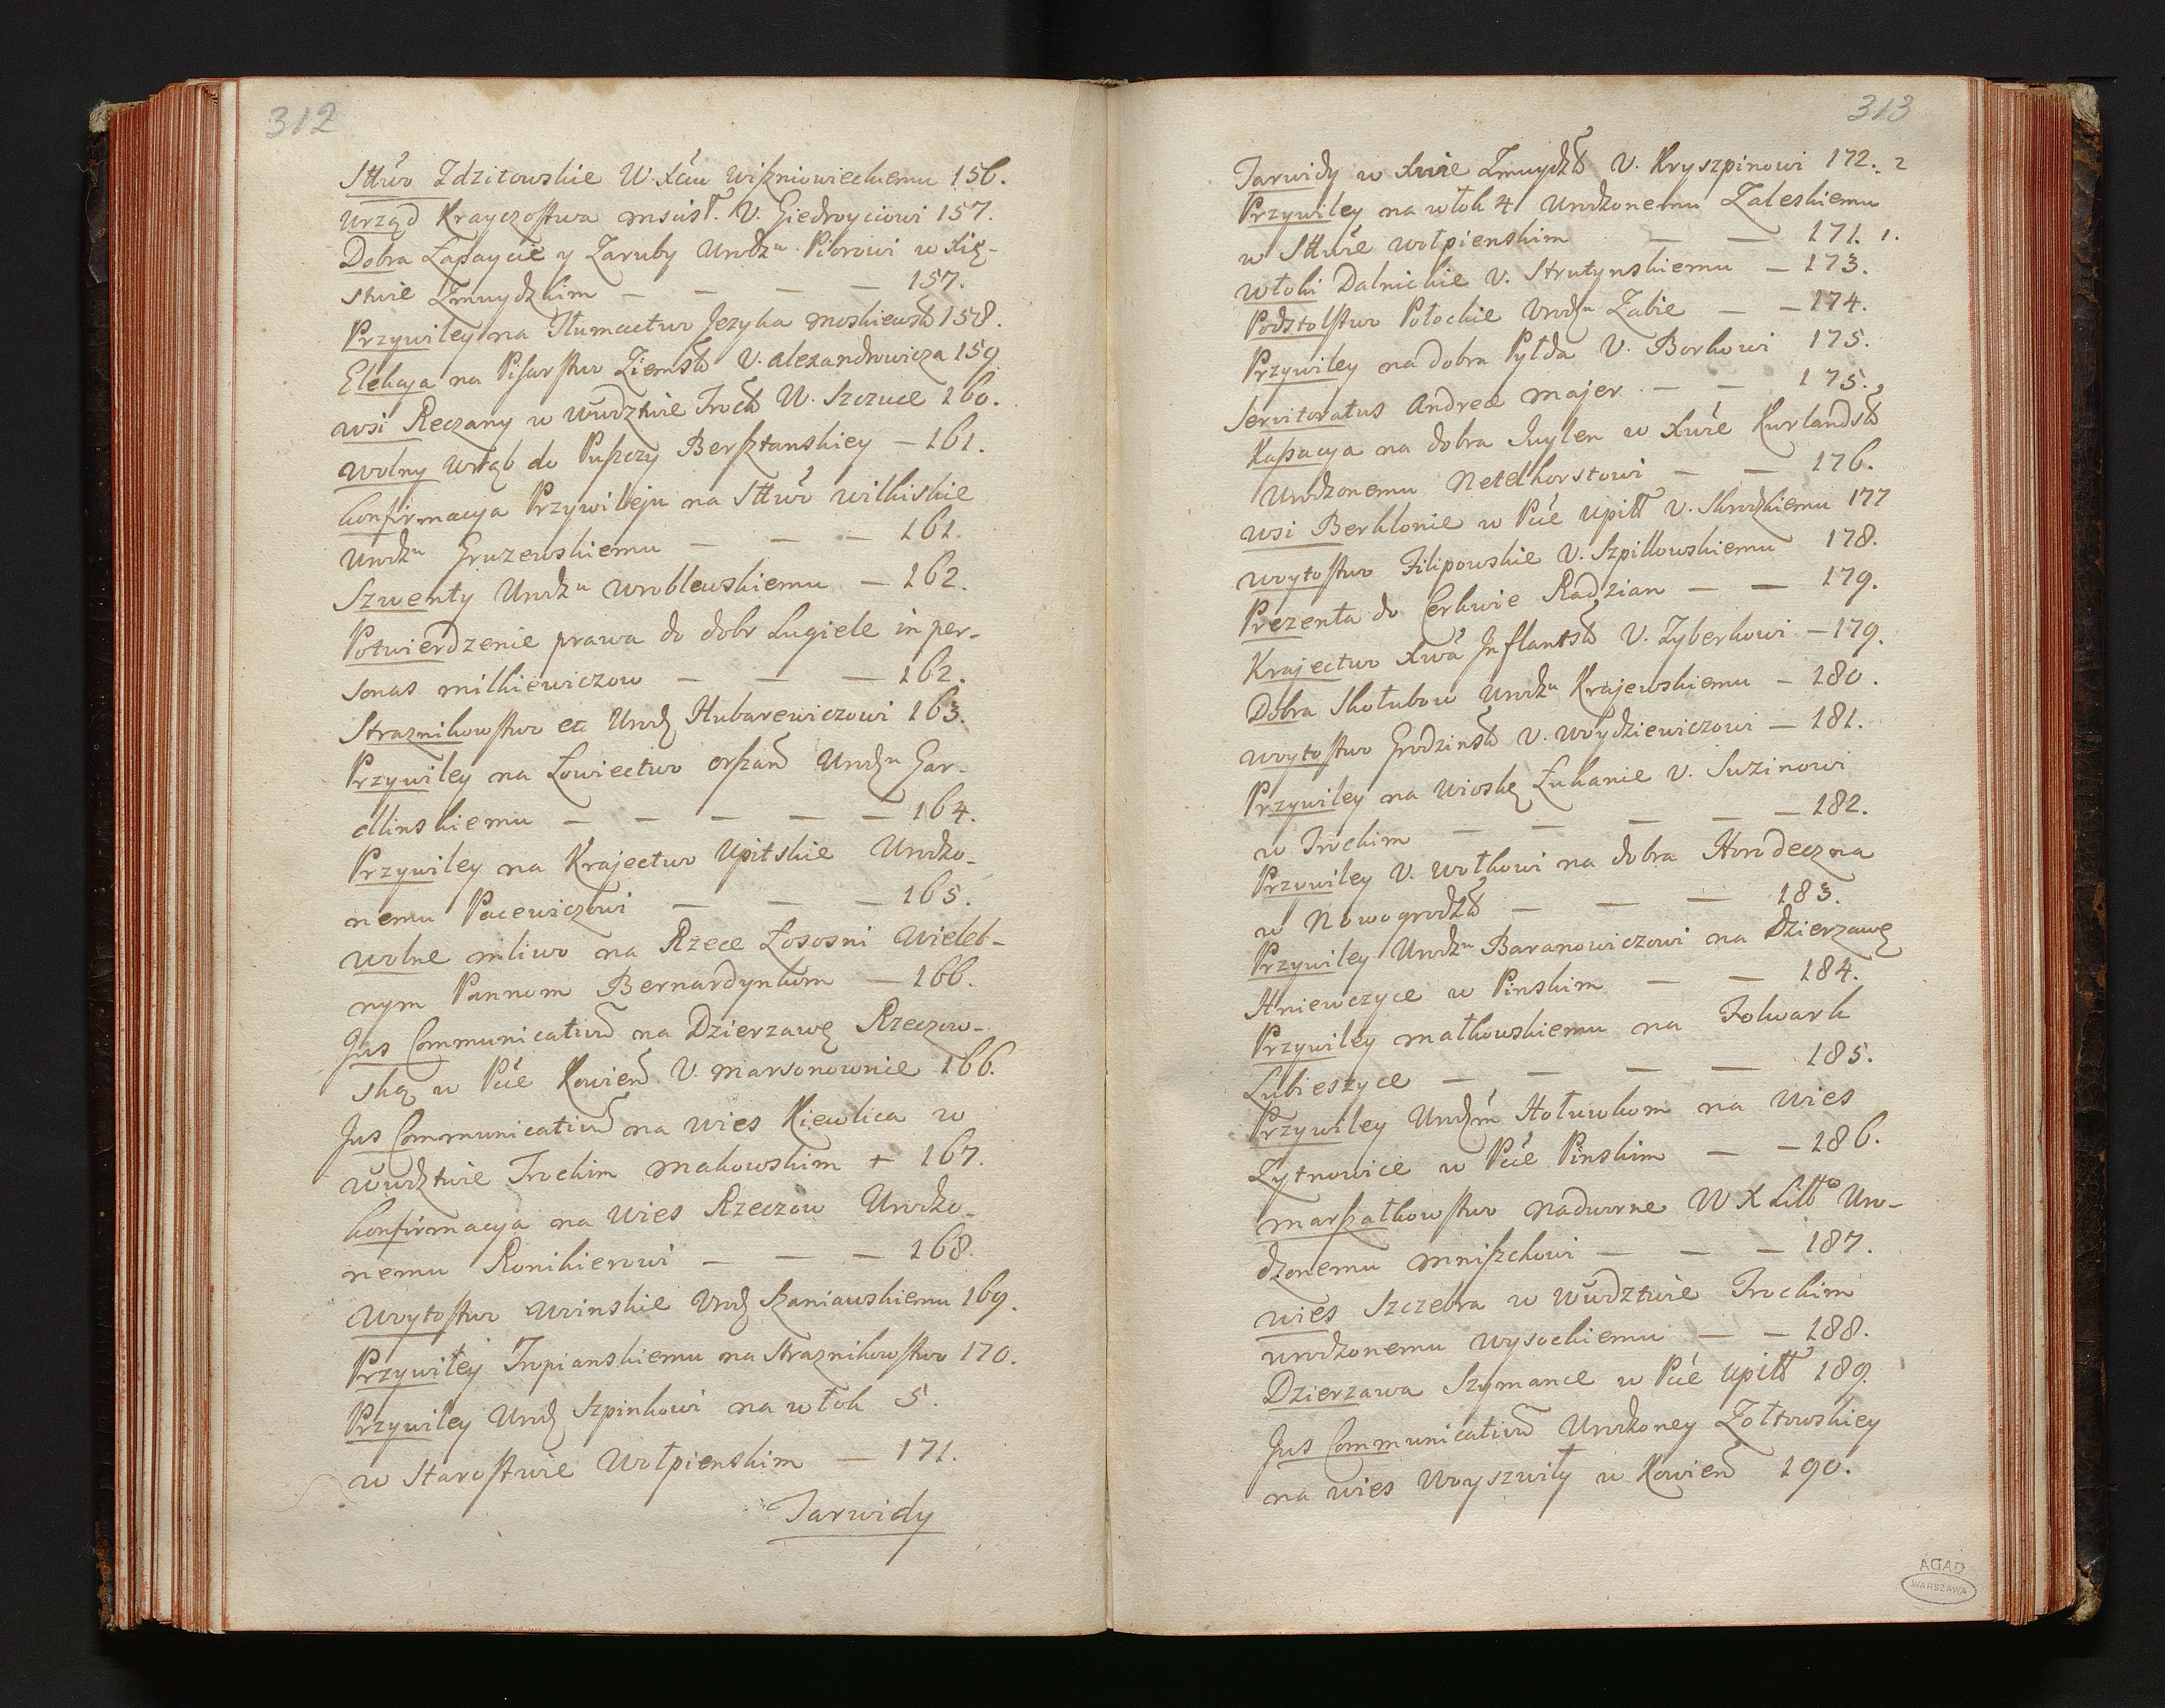 312
Sttwo Zdzitowskie W. Xciu Wiszniowieckiemu 156.
Urząd Krayczostwa mscisł. U. Giedroyciowi 157.
Dobra Łapaycie y Zaruby Urodzu Piorowi w Xię-
stwie Zmuydzkim — — — — 157.
Przywiley na Tłumactwo Języka moskiewsk 158.
Elekcya na Pisarstwo Ziemsk U. Alexandrowicza 159
wsi Reczany w Wwdztwie Trock U. Szczuce 160.
Wolny Wrąb do Puszczy Bersztanskiey — 161.
Konfirmacya Przywileju na Sttwo Wilkiskie
Urodzu Gruzewskiemu — — — 161.
Szwenty Urodzu Wroblewskiemu — 162.
Potwierdzenie prawa do dobr Lugiele in per-
sonas Milkiewiczow — — — 162.
Straznikowstwo etc Urodz Hubarewiczowi 163.
Przywiley na Łowiectwo orszan Urodzu Gar-
dlinskiemu — — — — — 164.
Przywiley na Krajectwo Upitskie Urodzo-
nemu Pacewiczowi — — — 165.
wolne mliwo na Rzece Łososni Wieleb-
nym Pannom Bernardynkom — 166.
Jus Communicativum na Dzierzawę Rzeczow-
ską w Pcie Kowien. U. Marsonownie 166.
Jus Communicativum na wies Kiewlica w
Wwdztwie Trockim Makowskim + 167.
Konfirmacya na Wies Rzeczow Urodzo-
nemu Ronikierowi — — — 168.
Woytostwo Uvinskie Urodz Szaniawskiemu 169.
Przywiley Tropianskiemu na Straznikowstwo 170.
Przywiley Urodz Szpinkowi na włok 5.
w Starostwie Wołpienskim — 171.
Tarwidy
313
Tarwidy w Xwie Zmuydzk U. Kryszpinowi 172. 2
Przywiley na włok 4 Urodzonemu Zaleskiemu
w Sttwie wołpienskim — — 171. 1.
włoki Dalnickie U. Strutynskiemu — 173.
Podstolstwo Połockie Urodzu Zabie — — 174.
Przywiley na dobra Pylda U. Borkowi 175.
Servitoratus Andreæ Majer — — 175.
Kassacya na dobra Juylen w Xwie Kurlandsk
Urodzonemu Netelhorstowi — — 176.
wsi Berklonie w Pcie Upitt U. Skrodzkiemu 177
woytostwo Filipowskie U. Szpillowskiemu 178.
Prezenta do Cerkwie Radzian — — 179.
Krajectwo Xwa Inflantsk U. Zyberkowi — 179.
Dobra Skołubow Urodzu Krajewskiemu — 180.
woytostwo Grodzinsk U. Woydziewiczowi — 181.
Przywiley na wioskę Łukanie U. Suzinowi
w Trockim — — — — — 182.
Przywiley U. Wołkowi na dobra Horodeczna
w Nowogrodzk — — — 183.
Przywiley Urodzu Baranowiczowi na Dzierzawę
Hniewczyce w Pinskim — — 184.
Przywiley Małkowskiemu na Folwark
Lubieszyce — — — — 185.
Przywiley Urodzm Hołuwkom na Wies
Zytnowice w Pcie Pinskim — — 186.
Marszałkowstwo nadworne W X Litto Uro-
dzonemu Mniszchowi — — — 187.
wies Szczebra w Wwdztwie Trockim
urodzonemu Wysockiemu — — 188.
Dzierzawa Szymance w Pcie Upitt 189.
Jus Communicativum Urodzoney Zołtowskiey
na wies Woyszwiły w Kowien 190.
AGAD
WARSZAWA